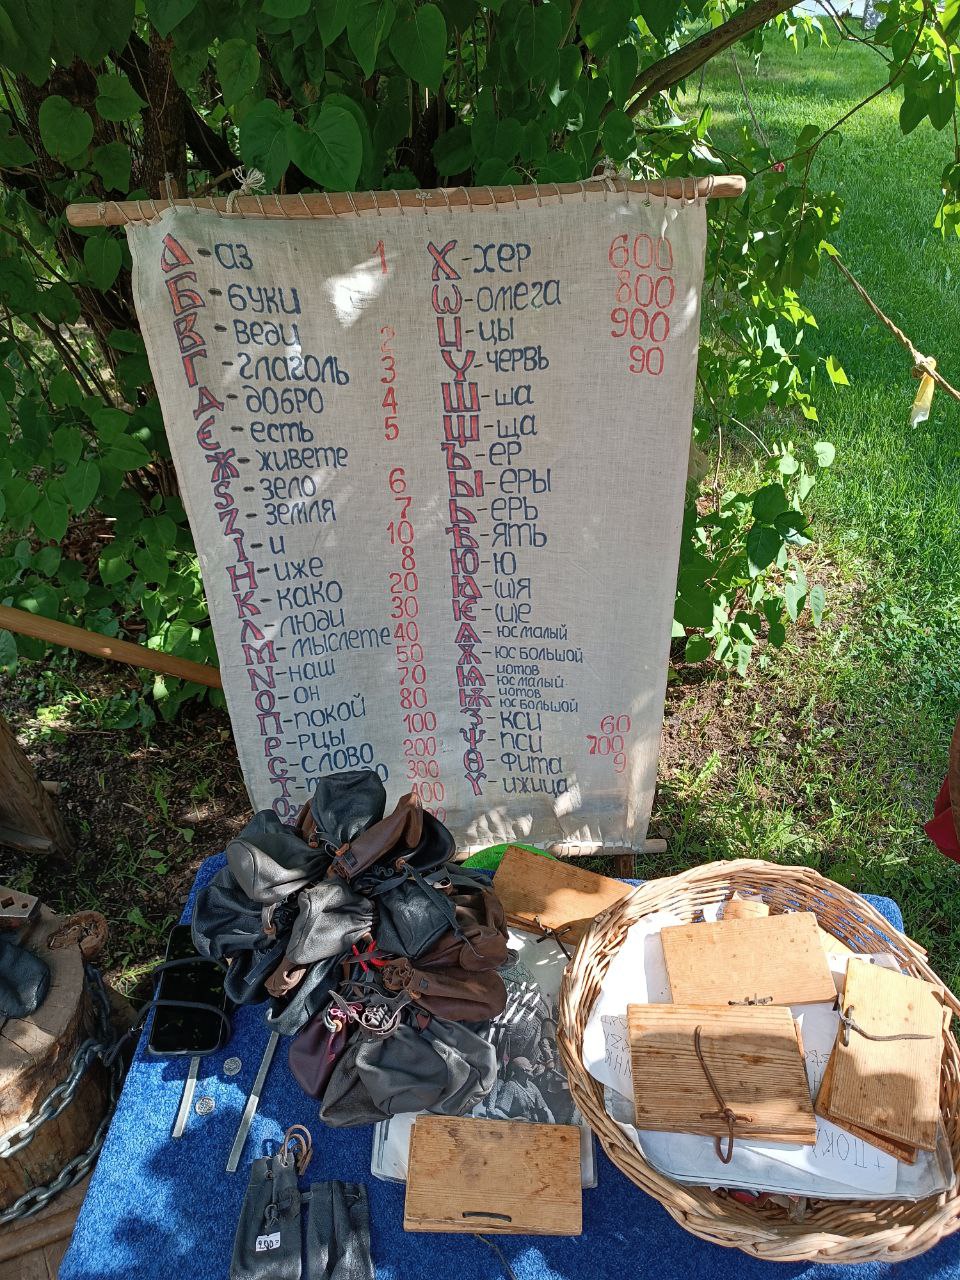 А - аз 1
Б - буки
В - веди 2
Г - глаголь 3
Д - добро 4
Є - есть 5
Ж - живете
Ѕ - зело 6
Z - земля 7
І - и 10
Н - иже 8
К - како 20
Л - люди 30
М - мыслете 40
N - наш 50
О - он 70
П - покой 80
Р - рцы 100
С - слово 200
Т 300
400
Х - хер 600
Ѡ - омега 800
Ц - цы 900
Ч - червь 90
Ш - ша
Щ - ща
Ъ - ер
Ы - еры
Ь - ерь
Ѣ - ять
Ю - ю
Ꙗ
Ѥ
Ѧ - юс малый
Ѫ - юс большой
Ѩ - иотов юс малый
Ѭ - иотов юс большой
Ѯ - кси 60
Ѱ - пси 700
Ѳ - фита 9
Ѵ - ижица
+ ПОК